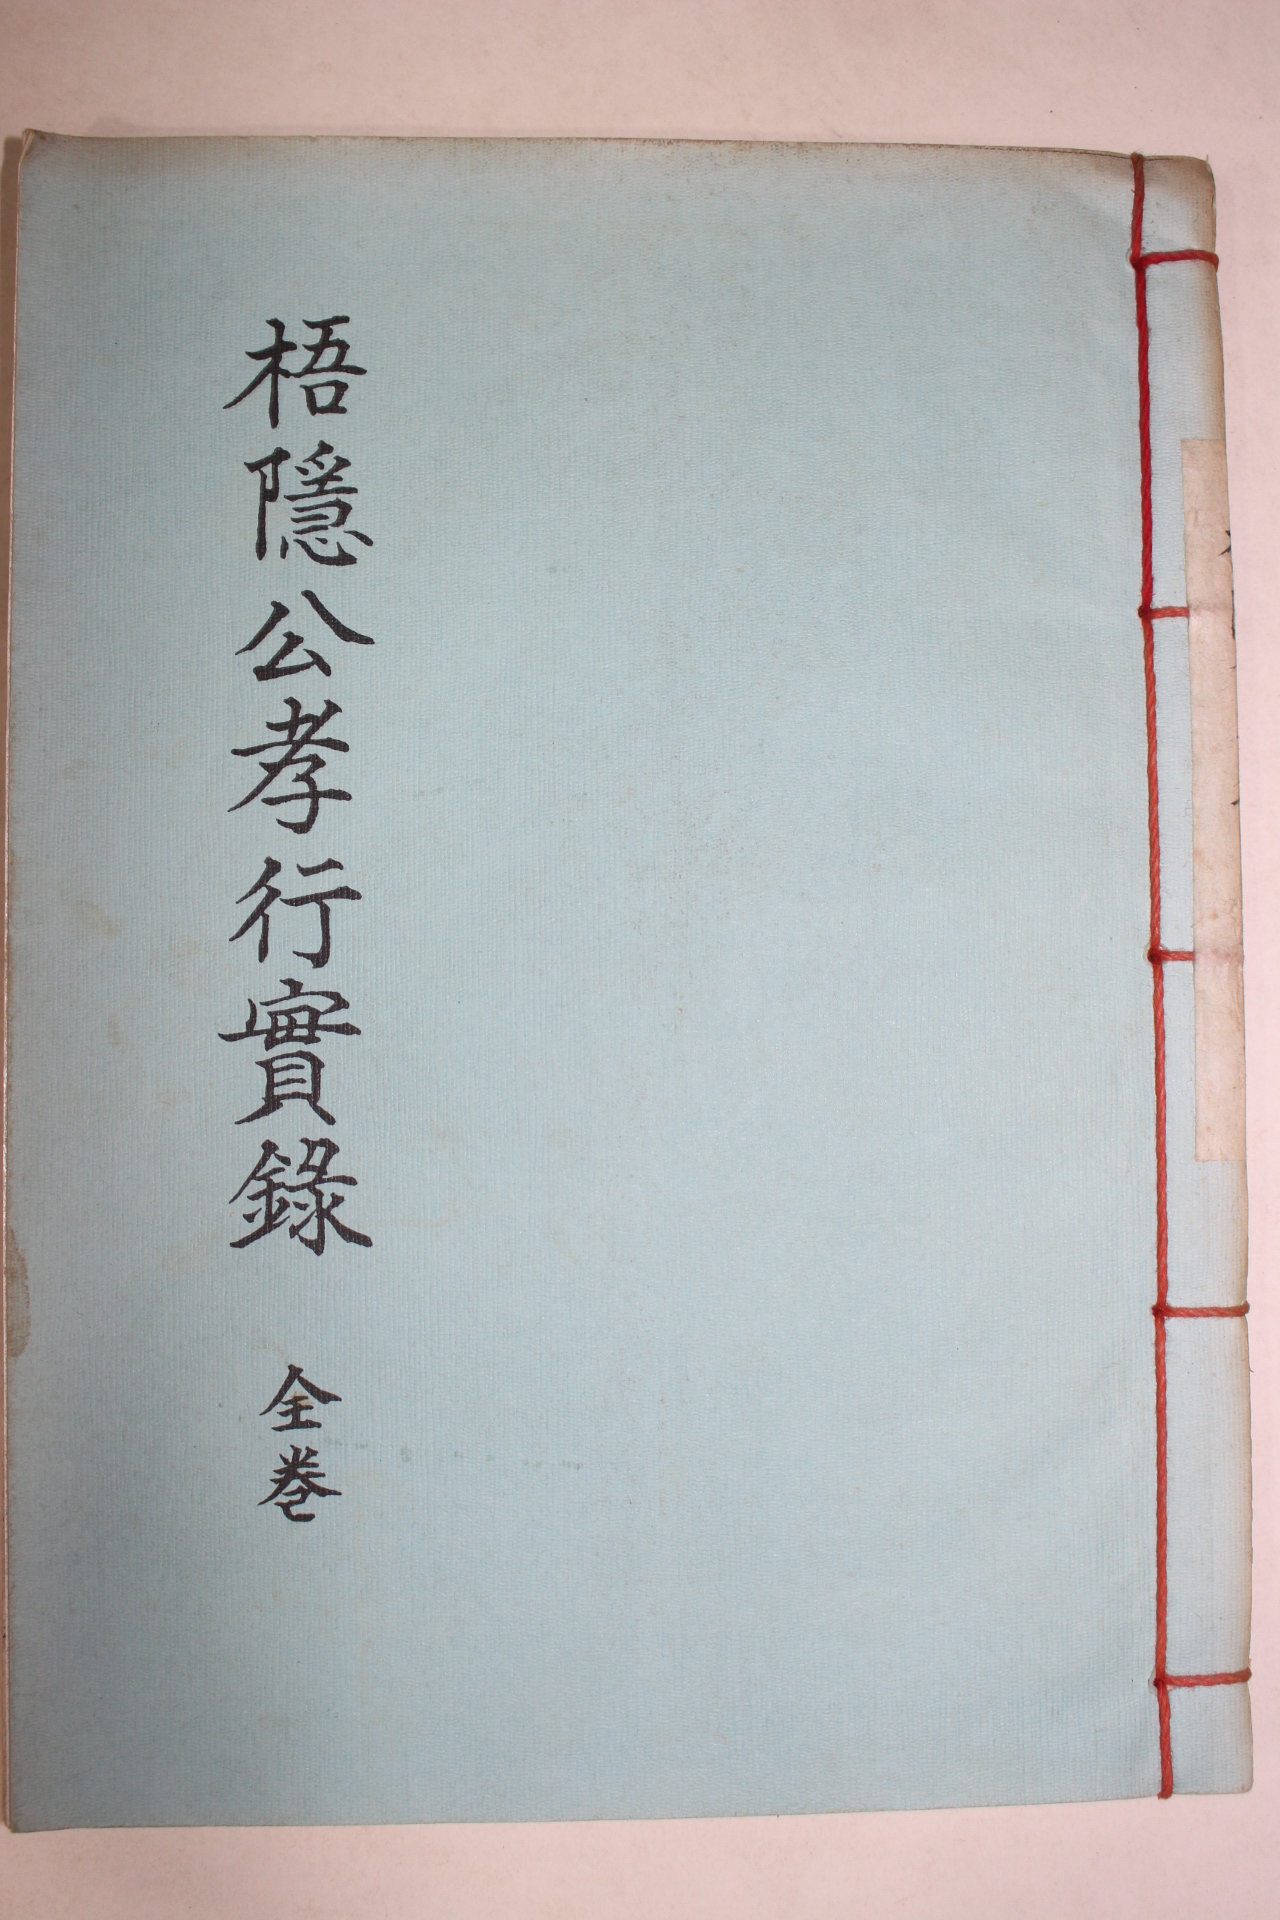 梧隱公孝行實錄
全巻